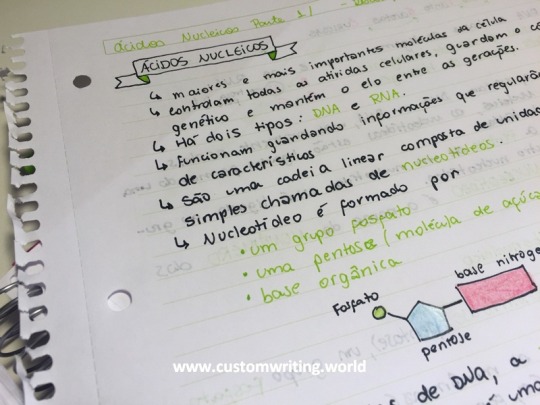 Ácidos Nucleicos Parte 1/
ÁCIDOS NUCLEICOS
↳ maiores e mais importantes moléculas da célula
↳ controlam todas as atividades celulares, guardam o
genético e mantém o elo entre as gerações.
↳ Há dois tipos: DNA e RNA.
↳ Funcionam guardando informações que regularão
de características
↳ São uma cadeia linear composta de unidades
simples chamadas de nucleotídeos.
↳ Nucleotídeo é formado por
• um grupo fosfato
• uma pentose (molécula de açúca
• base orgânica
Fosfato
base nitroge
pentose
www.customwriting.world
de DNA, a